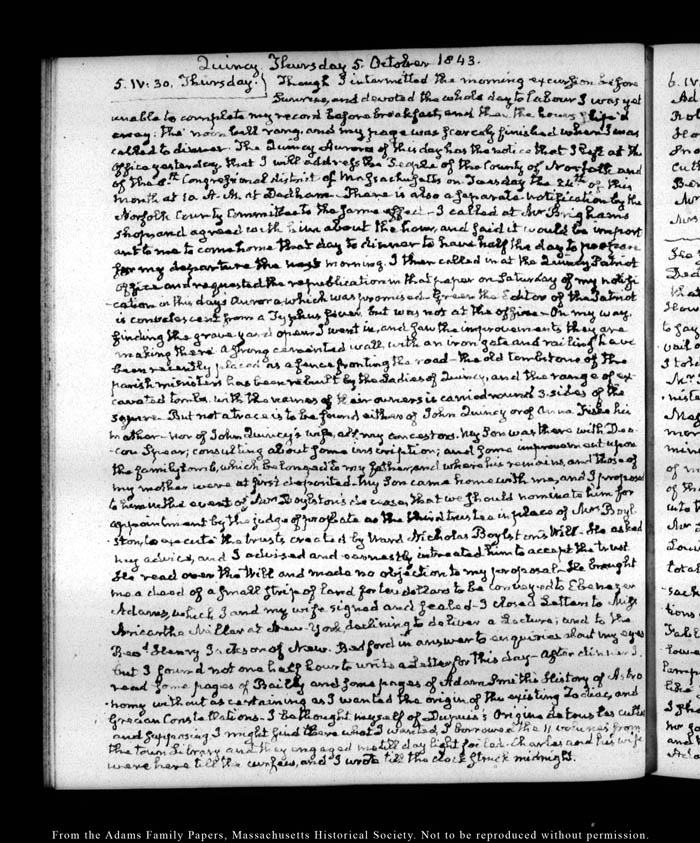 Quincy Thursday 5. October 1843.
5. IV: 30. Thursday. Though I intermitted the morning excursion before
Sunrise, and devoted the whole day to labour I was yet
unable to complete my record before breakfast, and then the hours slip'd
away. the noon bell rang, and my page was scarcely finished when I was
called to dinner. The Quincy Aurora of this day has the notice that I left at the
Office yesterday that I will address the People of the County of Norfolk and
of the 8th. Congressional district of Massachusetts on Tuesday the 24th of this
month at 10 A.M. at Dedham. There is also a separate notification by the
Norfolk County Committee to the same effect. I called at Mr Brigham's
shop and agreed with him about the hour, and said it would be import
ant to me to come home that day to dinner to have half the day to prepare
for my departure the next morning. I then called in at the Quincy Patriot
office and requested the republication in that paper on Saturday of my notifi
cation in this day's Aurora which was promised. Green the Editor of the Patriot
is convalescent from a Typhus fever but was not at the office. On my way,
finding the grave yard open I went in, and saw the improvements they are
making there. A strong cemented wall, with an iron gate and railing have
been recently placed as a fence fronting the road. the old tombstone of the
parish ministers has been rebuilt by the Ladies of Quincy, and the range of ex-
cavated tombs with the names of their owners is carried round 3 sides of the
square. But not a trace is to be found either of John Quincy or of Anna Fiske his
mother. nor of John Quincy's wife, all my ancestors. My Son was there with Dea-
con Spear; consulting about some inscription; and some improvement upon
the family tomb, which belonged to my father, and where his remains, and those of
my mother were at first deposited. My Son came home with me, and I proposed
to him in the event of Mrs Boylston's decease, that we should nominate him for
appointment by the judge of probate as the third trustee in place of Mrs Boyl-
ston, to execute the trusts created by Ward Nicholas Boylston's Will. He asked
my advice, and I advised and earnestly intreated him to accept the trust
He read over the Will and made no objection to my proposal. He brought
me a deed of a small strip of land for ten dollars to be conveyed to Ebenezer
Adams, which I and my wife signed and sealed. I closed Letters to Miss
Miller at New-York, declining to deliver a Lecture; and to the
Revd. Henry Jackson of New-Bedford in answer to enquiries about my eyes
but I found not one half hour to write a Letter for this day. After dinner I
read some pages of Bailly and some pages of Adam Smith's History of Astro
nomy without ascertaining as I wanted the origin of the existing Zodiac, and
Grecian Constellations. I bethought myself of Dupuis's Origine de tous les cultes
and supposing I might find there what I wanted, I borrowed the 11 volumes from
the town Library and they engaged me till day light failed. Charles and his wife
were here till the curfew, and I wrote till the clock struck midnight.
From the Adams Family Papers, Massachusetts Historical Society. Not to be reproduced without permission.